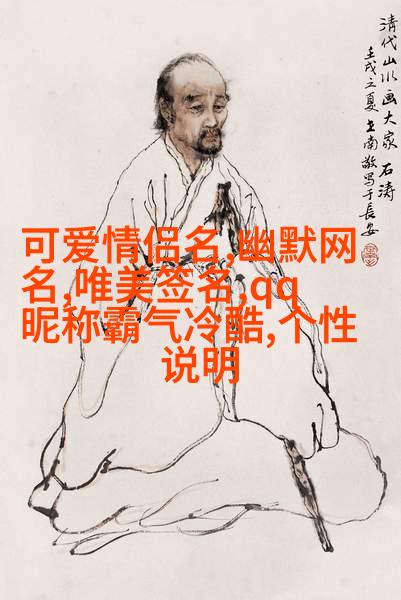 清代山水画大家 石涛
壬戌之夏 南敬写于長安
可爱情侣名,幽默网
名,唯美签名,qq
昵称霸气冷酷,个性
说明